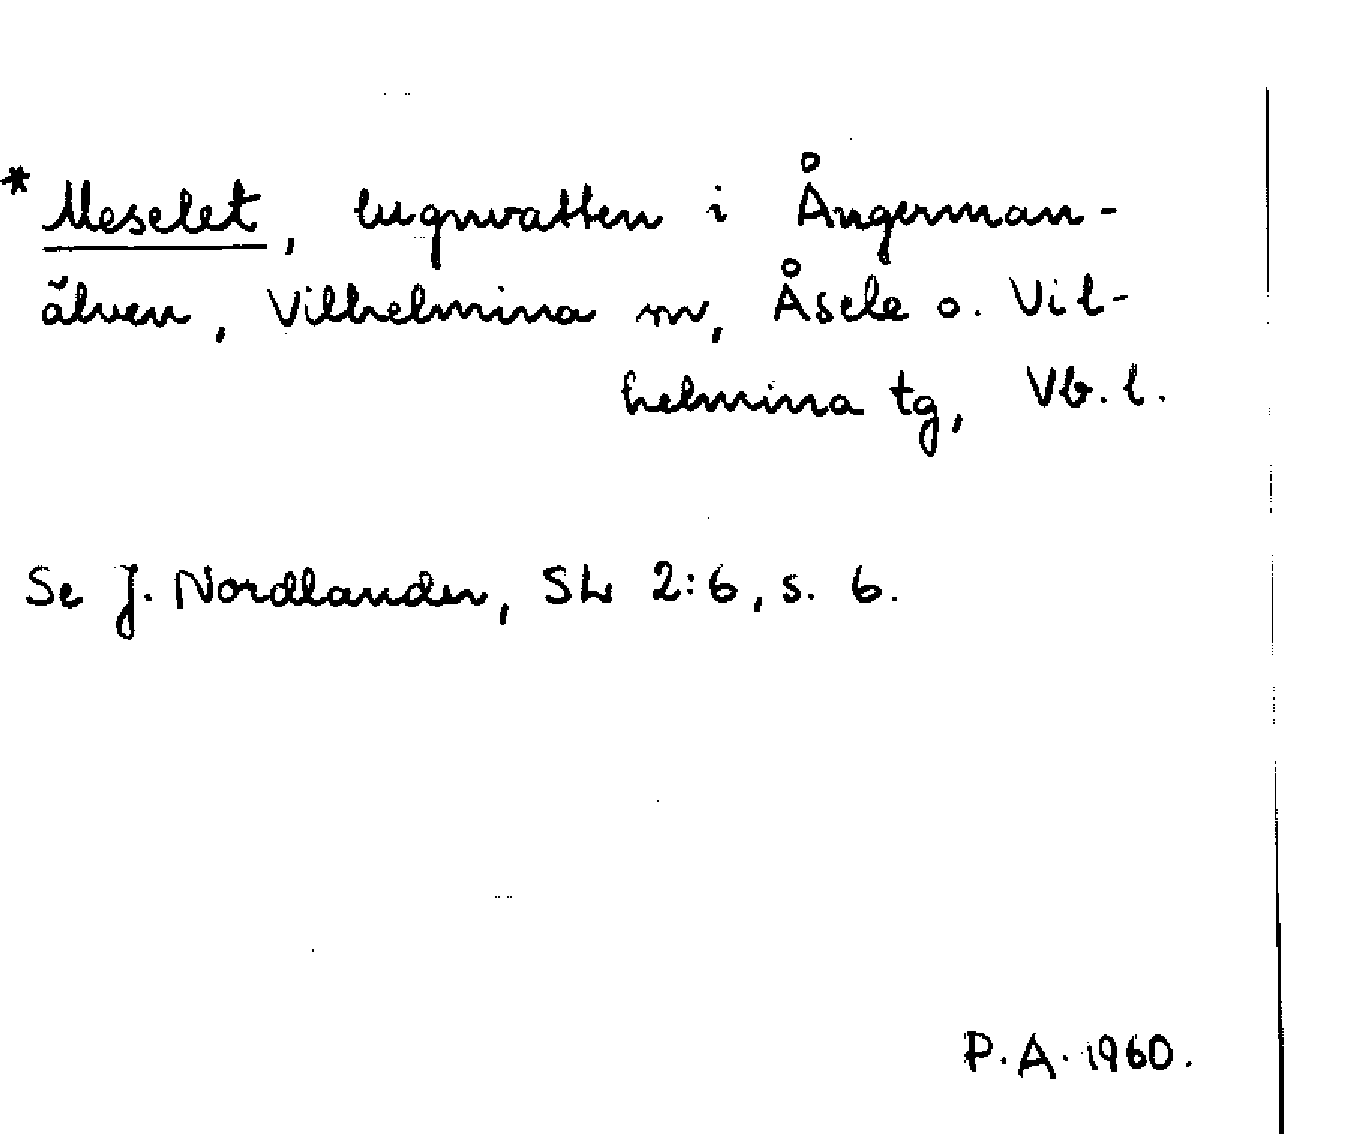 * Meselet, lugnvatten i Ångerman-
älven, Vilhelmina sn, Åsele o. Vil-
helmina tg, Vb. l.
Se J. Nordlander, SL 2:6, s. 6.
P. A. 1960.